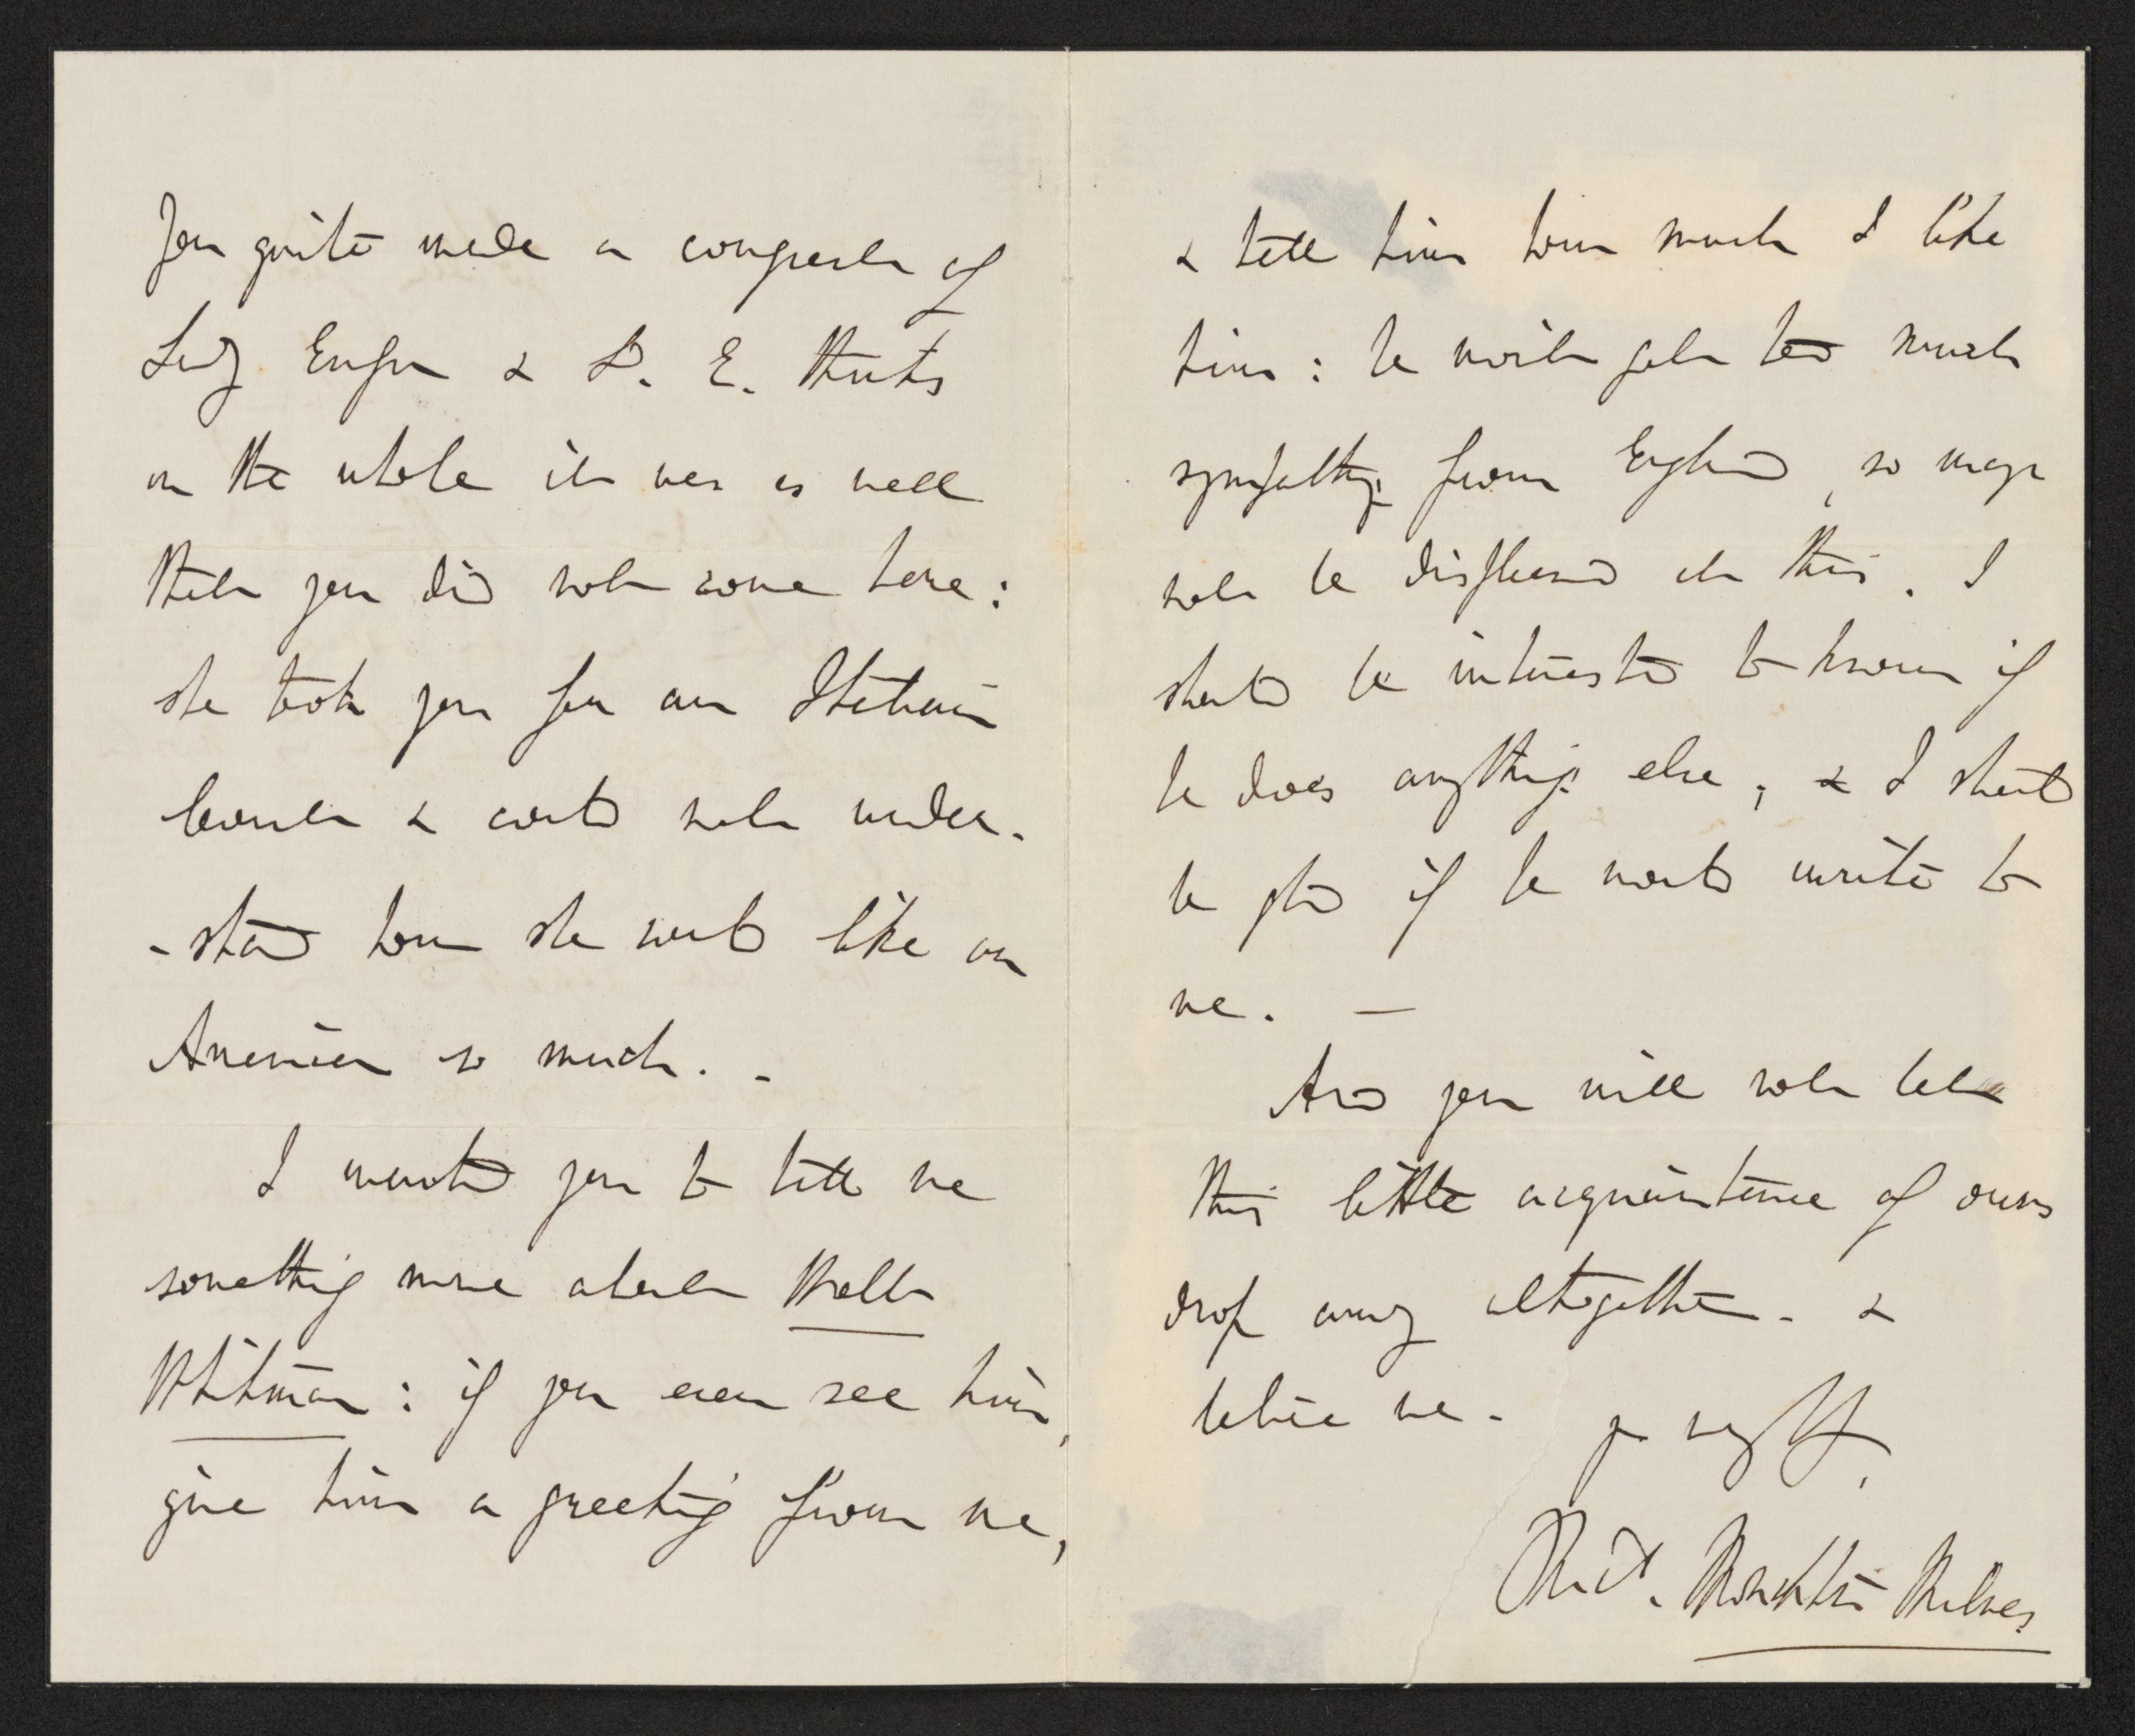 You quite made a conquest of
Lady & L. E. thinks
on the whole it was as well
that you did not come here:
she took you for an Italian
& could not under-
-stand how she could like an
American so much. -
I wanted you to tell me
something more about Walt
Whitman: if you ever see him,
give him a greeting from me,
& tell him how much I like
him: he won't get too much
sympathy from England, so may
not be displeased at this. I
should be interested to know if
he does anything else, & I should
be glad if he would write to
me. —
And you will not let
this little acquaintance of ours
drop away altogether - &
believe me -
Richd. Monckton Milnes